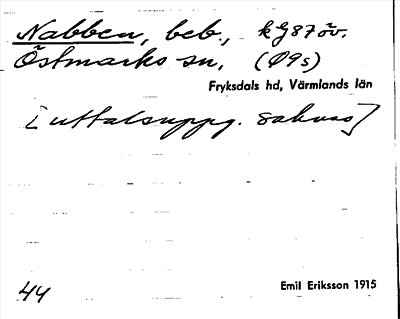 Nabben, beb., kG87öv.
Östmarks sn, (Ø9s)
Fryksdals hd, Värmlands län
[uttalsuppg. saknas]
44
Emil Eriksson 1915